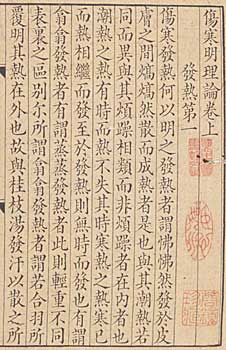 傷寒明理論卷上
發熱第一
傷寒發熱何以明之發熱者謂怫怫然發於皮
膚之間熇熇然散而成熱者是也與其潮熱若
同而異與其煩躁相類而非煩躁者在內者也
潮熱之熱有時而熱不失其時寒熱之熱寒已
而熱相繼而發至於發熱則無時而發也有謂
翕翕發熱者有謂蒸蒸發熱者此則輕重不同
表裏之區別尔所謂翕翕發熱者謂若合羽所
覆明其熱在外也故與桂枝湯發汗以散之所